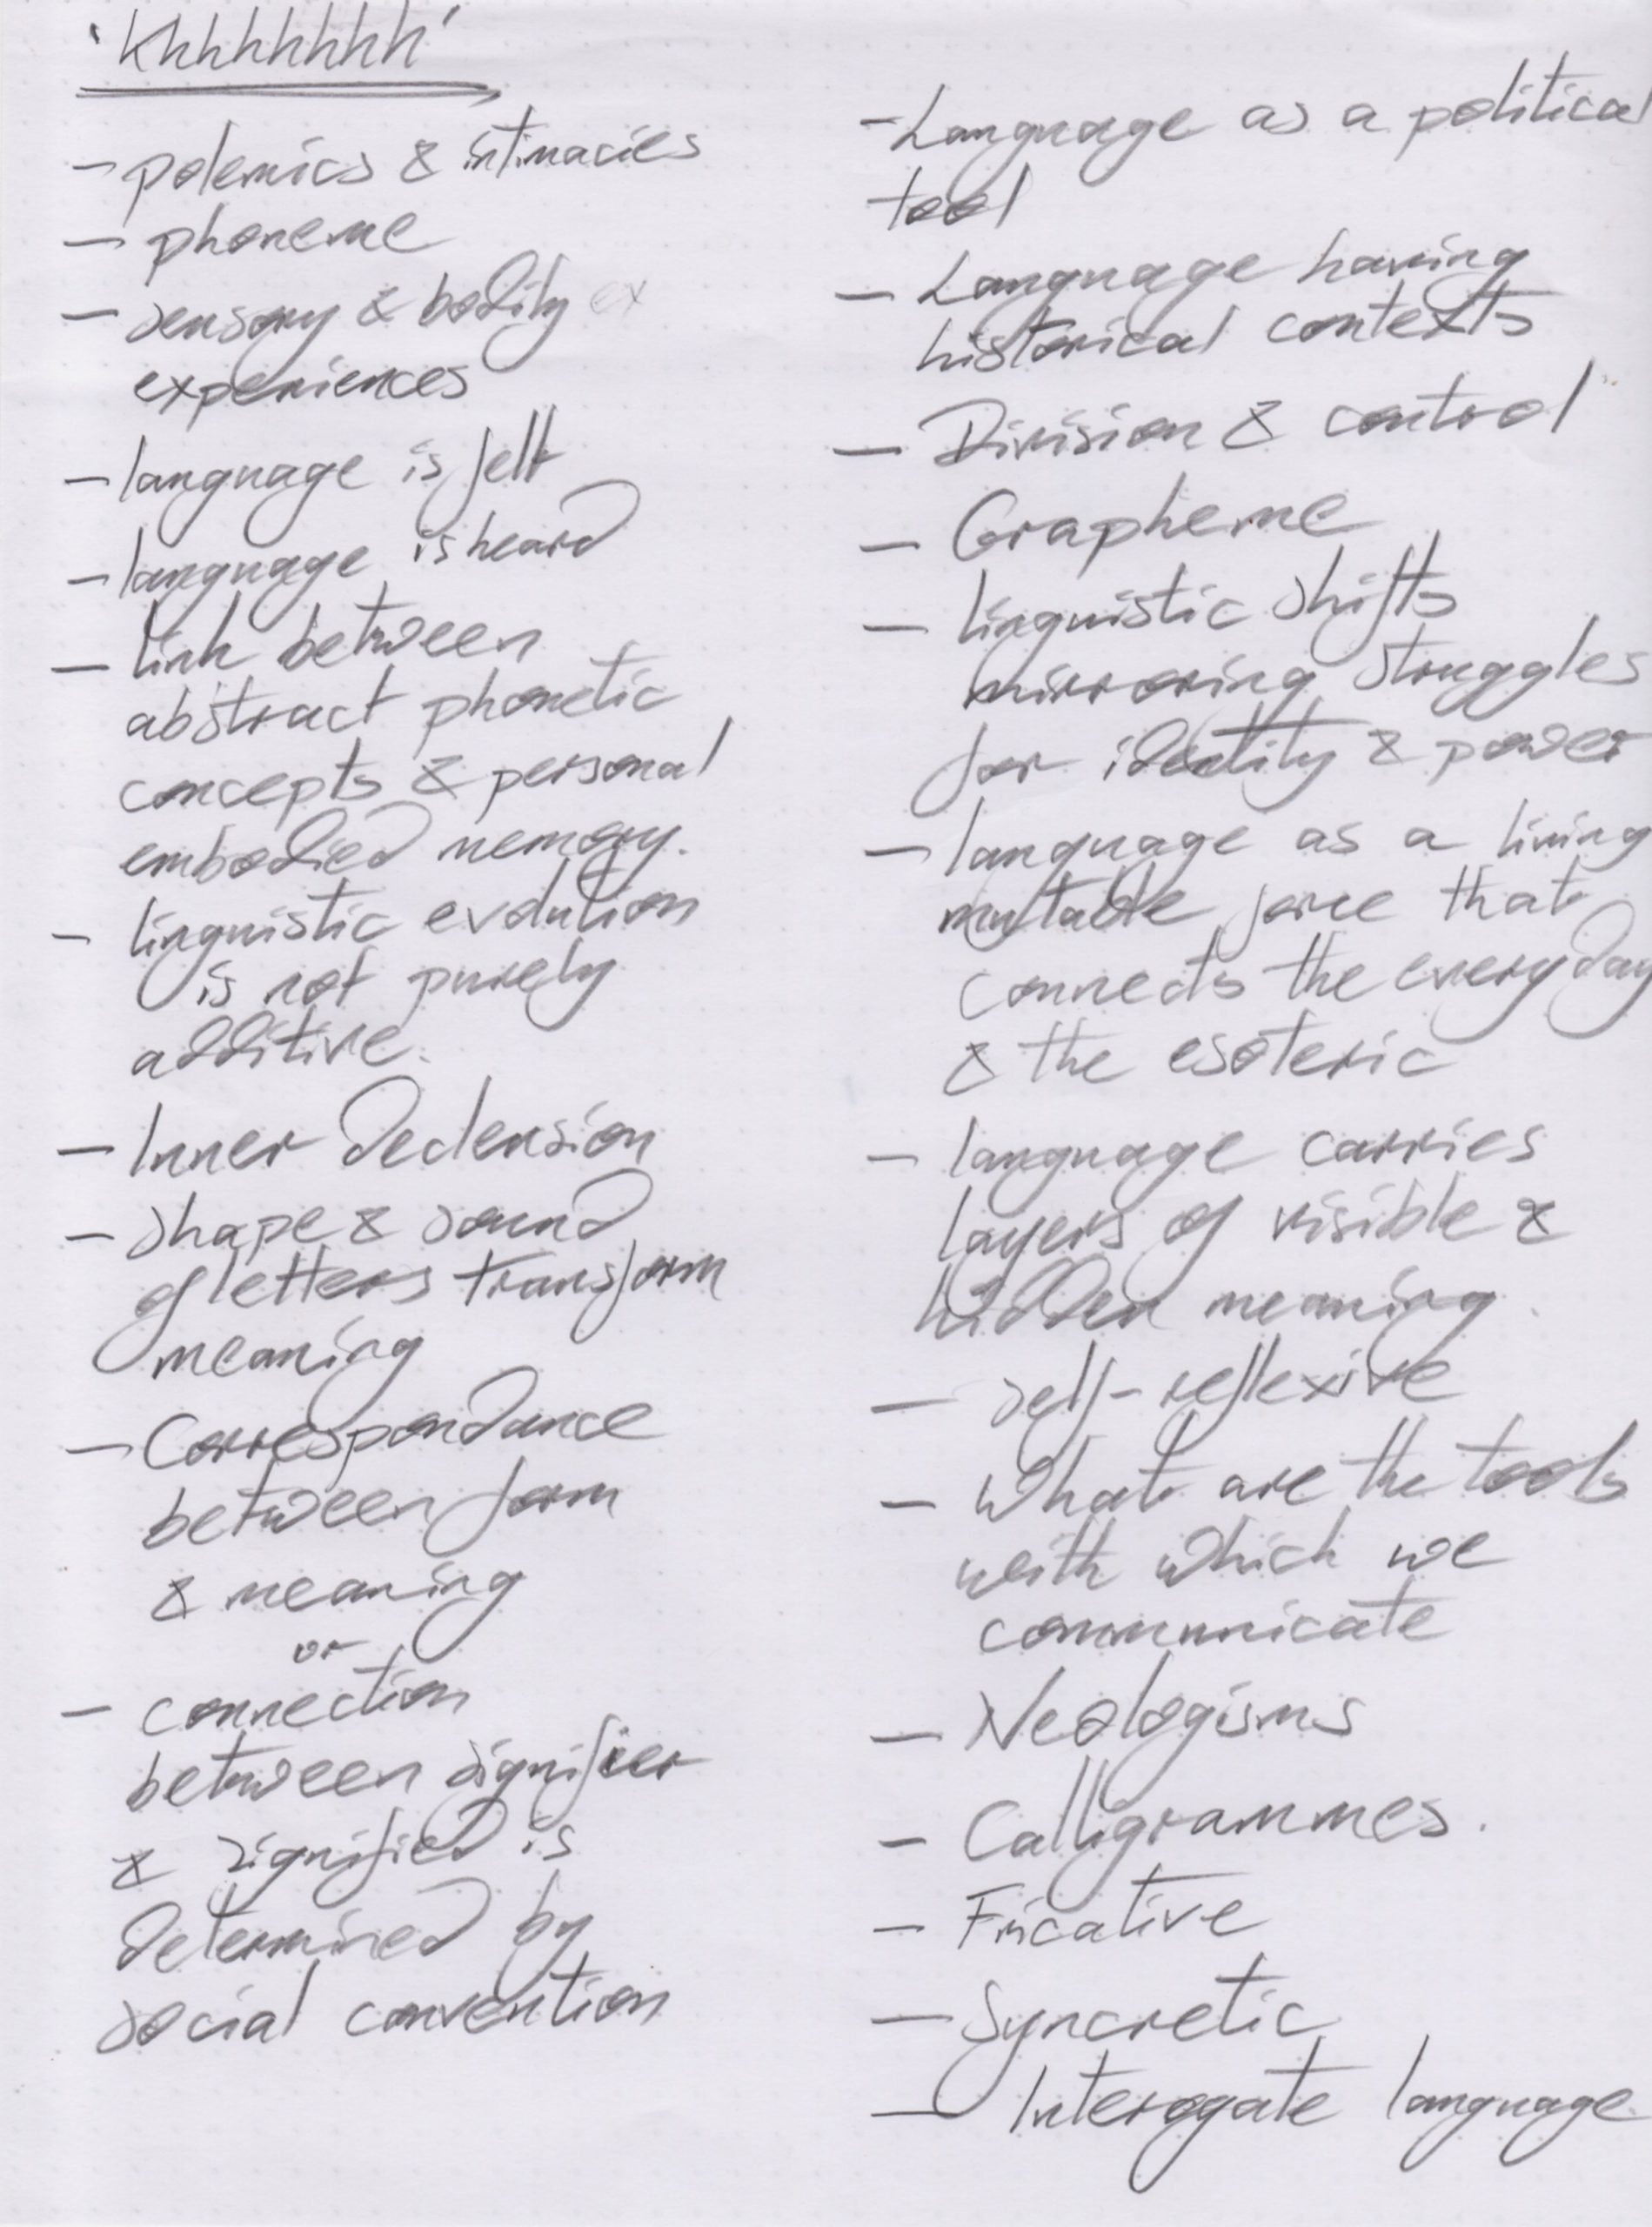 'Khhhhhhh'
- polemics & intimacies
- phoneme
- sensory & bodily ex
experiences
- language is felt
- language is heard
- link between
abstract phonetic
concepts & personal
embodied memory.
- linguistic evolution
is not purely
additive.
- Inner declension
- shape & sound
of letters transform
meaning
- Correspondance
between form
& meaning
or
- connection
between signifier
& signified is
determined by
social convention
- Language as a political
tool
- Language having
historical contexts
- Division & control
- Grapheme
- linguistic shifts
mirroring struggles
for identity & power
- language as a living
mutable force that
connects the everyday
& the esoteric
- language carries
layers of visible &
hidden meaning.
- self-reflexive
- What are the tools
with which we
communicate
- Neologisms
- Calligrammes.
- Fricative
- Syncretic
- Interogate language